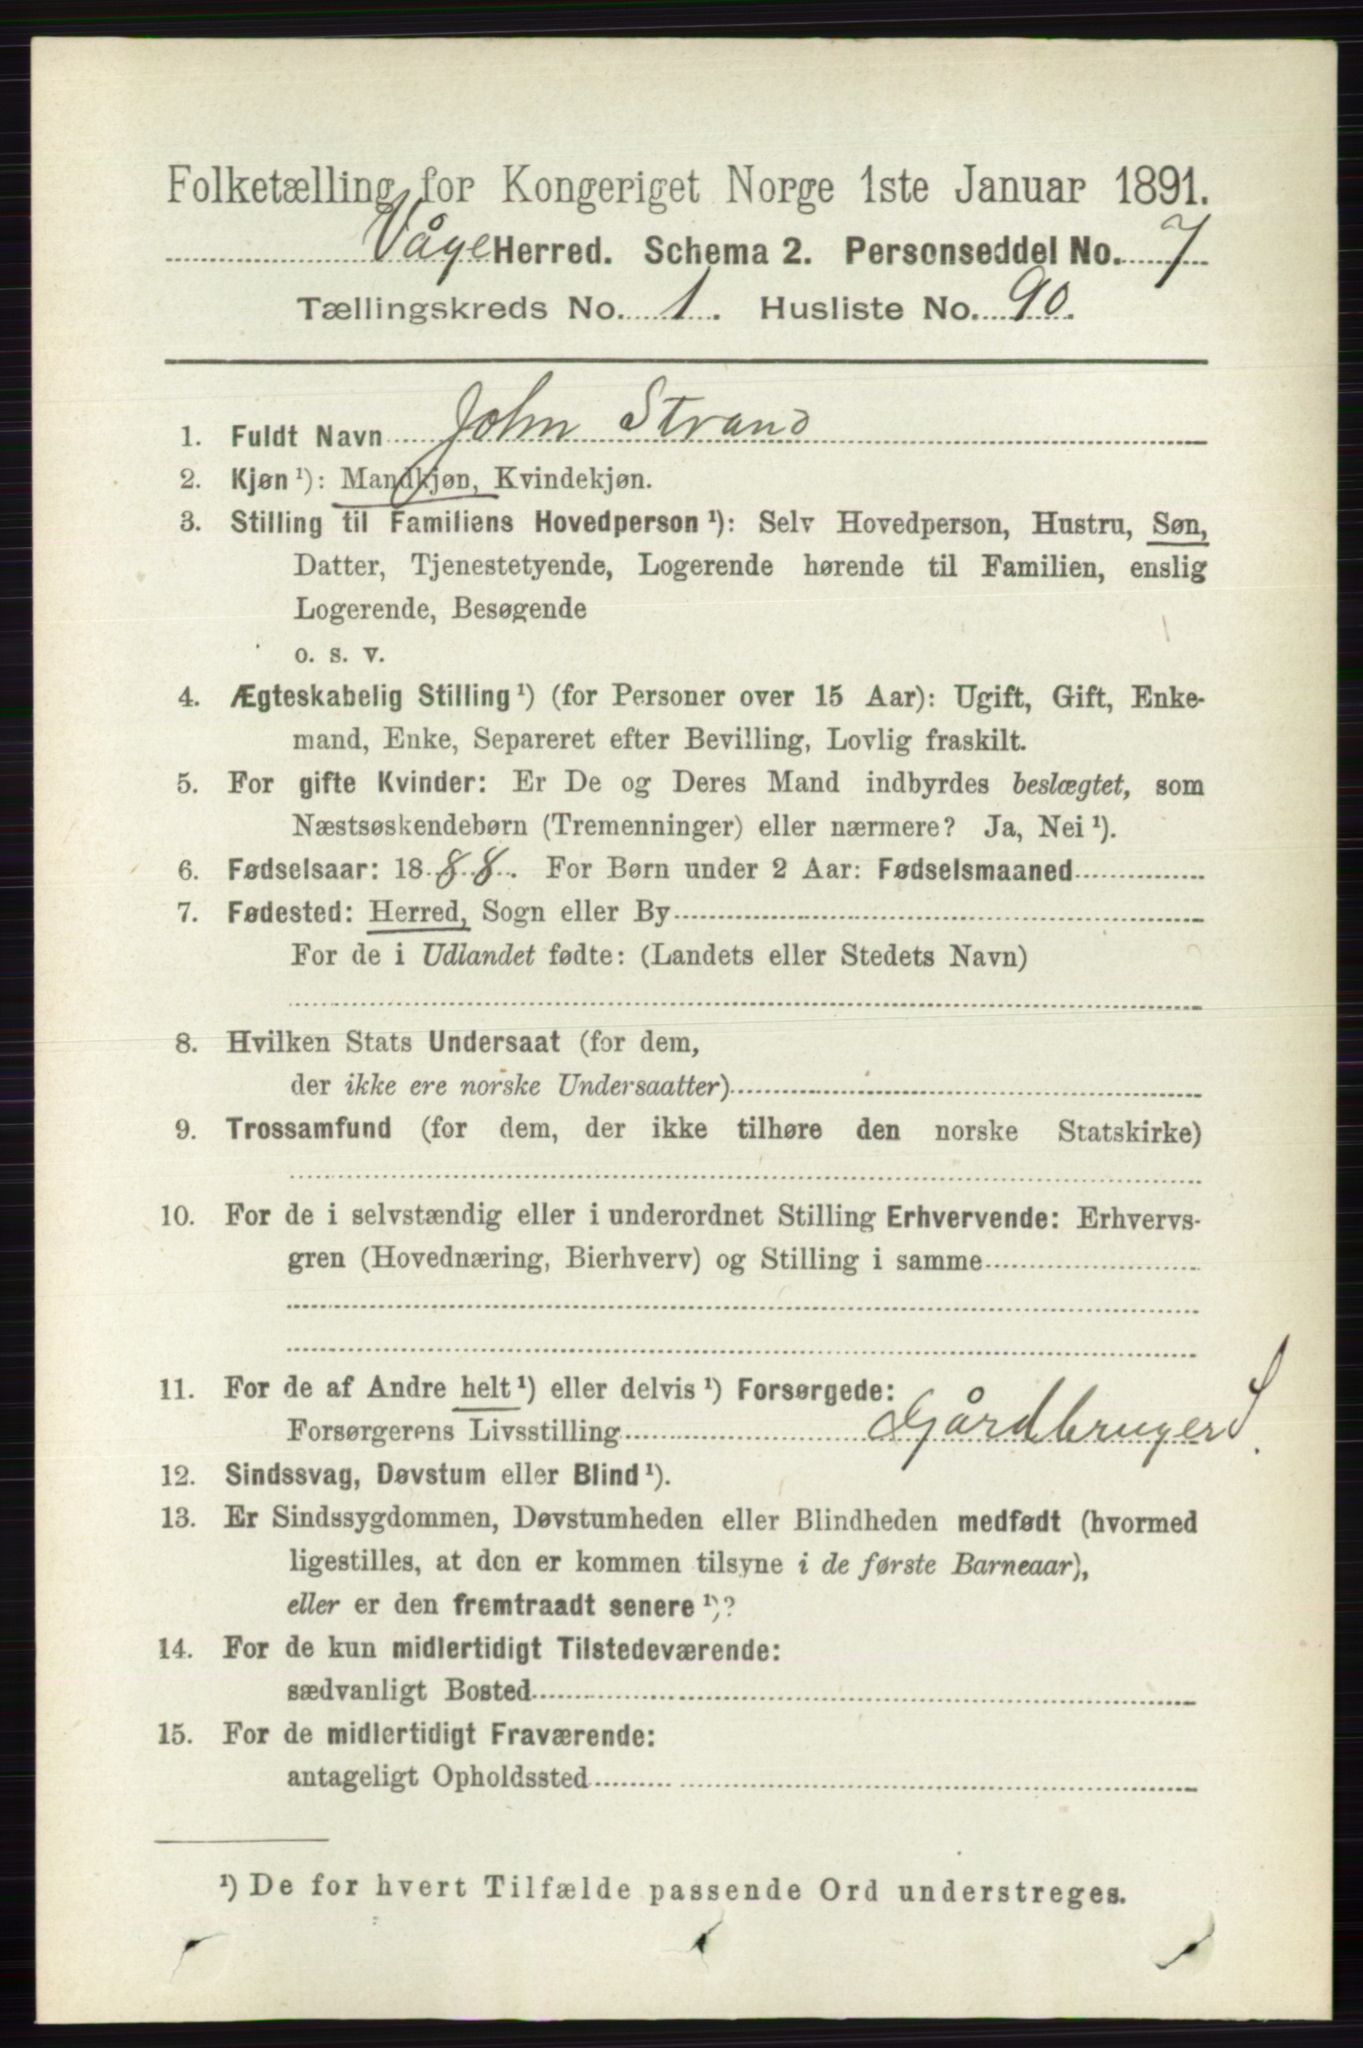 Folketælling for Kongeriget Norge 1ste Januar 1891.
Våge Herred. Schema 2. Personseddel No. 7
Tællingskreds No. 1. Husliste No. 90.
1. Fuldt Navn John Strand
2. Kjøn¹): Mandkjøn, Kvindekjøn.
3. Stilling til Familiens Hovedperson¹): Selv Hovedperson, Hustru, Søn,
Datter, Tjenestetyende, Logerende hørende til Familien, enslig
Logerende, Besøgende
o. s. v.
4. Ægteskabelig Stilling¹) (for Personer over 15 Aar): Ugift, Gift, Enke-
mand, Enke, Separeret efter Bevilling, Lovlig fraskilt.
5. For gifte Kvinder: Er De og Deres Mand indbyrdes beslægtet, som
Næstsøskendebørn (Tremenninger) eller nærmere? Ja, Nei¹).
6. Fødselsaar: 1888. For Børn under 2 Aar: Fødselsmaaned
7. Fødested: Herred, Sogn eller By
For de i Udlandet fødte: (Landets eller Stedets Navn)
8. Hvilken Stats Undersaat (for dem,
der ikke ere norske Undersaatter)
9. Trossamfund (for dem, der ikke tilhøre den norske Statskirke)
10. For de i selvstændig eller i underordnet Stilling Erhvervende: Erhvervs-
gren (Hovednæring, Bierhverv) og Stilling i samme
11. For de af Andre helt¹) eller delvis¹) Forsørgede:
Forsørgerens Livsstilling Gårdbruger S.
12. Sindssvag, Døvstum eller Blind¹).
13. Er Sindssygdommen, Døvstumheden eller Blindheden medfødt (hvormed
ligestilles, at den er kommen tilsyne i de første Barneaar),
eller er den fremtraadt senere¹)?
14. For de kun midlertidigt Tilstedeværende:
sædvanligt Bosted
15. For de midlertidigt Fraværende:
antageligt Opholdssted
¹) De for hvert Tilfælde passende Ord understreges.